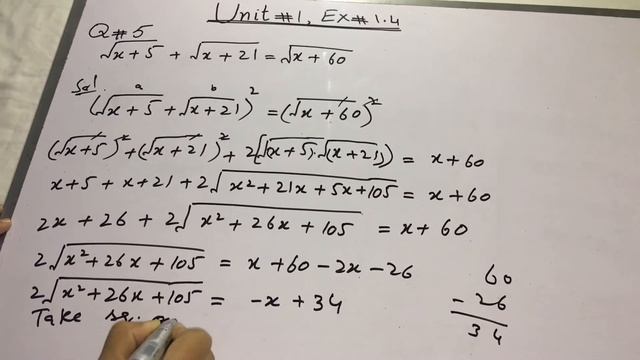 Unit #1, Ex# 1.4
Q#5
√x+5 + √x+21 = √x+60
Sol
a b
(√x+5 + √x+21)² = (√x+60)²
(√x+5)² + (√x+21)² + 2(√(x+5)·√(x+21)) = x+60
x+5 + x+21 + 2√x²+21x+5x+105 = x+60
2x + 26 + 2√x²+26x+105 = x+60
2√x²+26x+105 = x+60-2x-26
2√x²+26x+105 = -x+34
60
-26
34
Take sq.